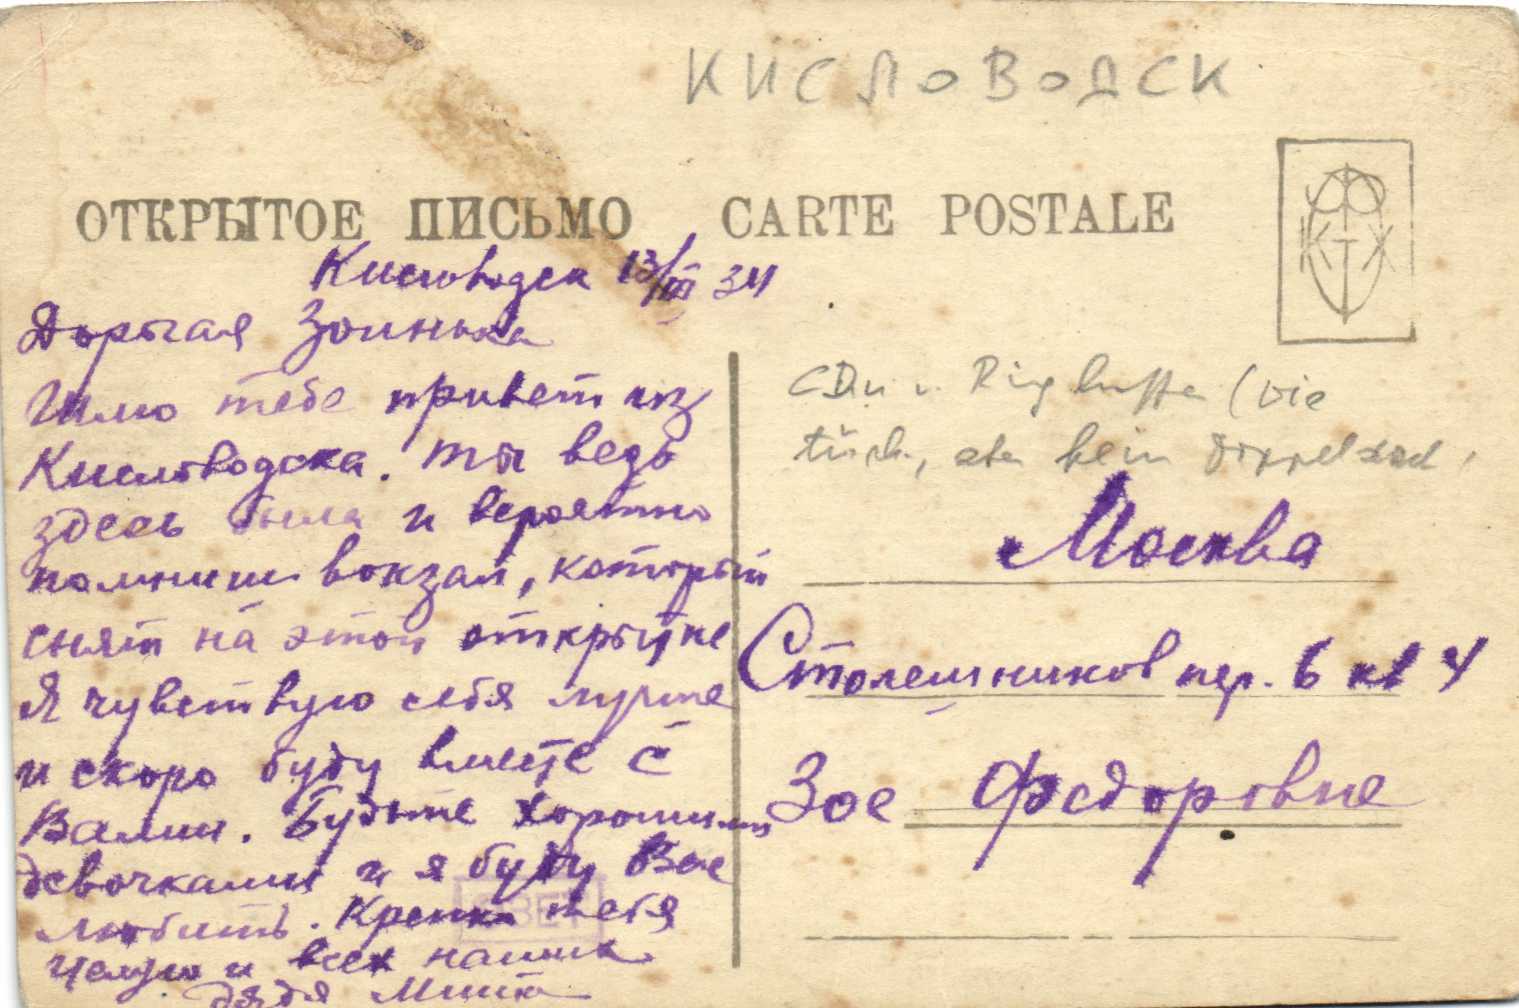 КИСЛОВОДСК
ОТКРЫТОЕ ПИСЬМО CARTE POSTALE
КТХ
Кисловодск 13/III 34
Дорогая Зоинька
Шлю тебе привет из
Кисловодска. Ты ведь
здесь была и вероятно
помнишь вокзал, который
снят на этой открытке
Я чувствую себя лучше
и скоро буду вместе с
Вами. Будьте хорошими
девочками и я буду Вас
любить. Крепко тебя
целую и всех наших.
дядя Миша
(wie
, aber kein
Москва
Столешников пер. 6 кв 4
Зое Федоровне